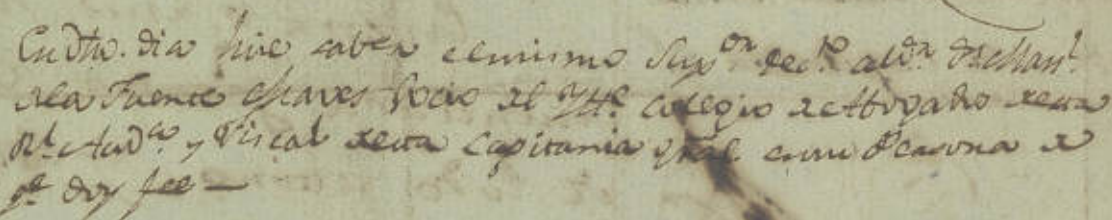 En dho. dia hice saver el mismo Sup.or Dec.to al D.r Dn Man.l
de la Fuente Chaves Socio del Ytt.e Colegio de Abogados de esta
R.l Aud.a y Fiscal de esta Capitania Gral. en su Persona de
q.e doy fee —